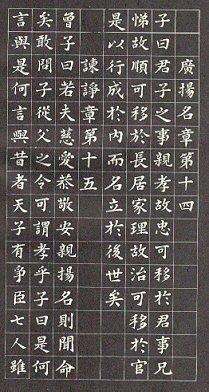 廣揚名章第十四
子曰君子之事親孝故忠可移於君事兄
悌故順可移於長居家理故治可移於官
是以行成於內而名立於後世矣
諫諍章第十五
曾子曰若夫慈愛恭敬安親揚名則聞命
矣敢問子從父之令可謂孝乎子曰是何
言與是何言與昔者天子有爭臣七人雖